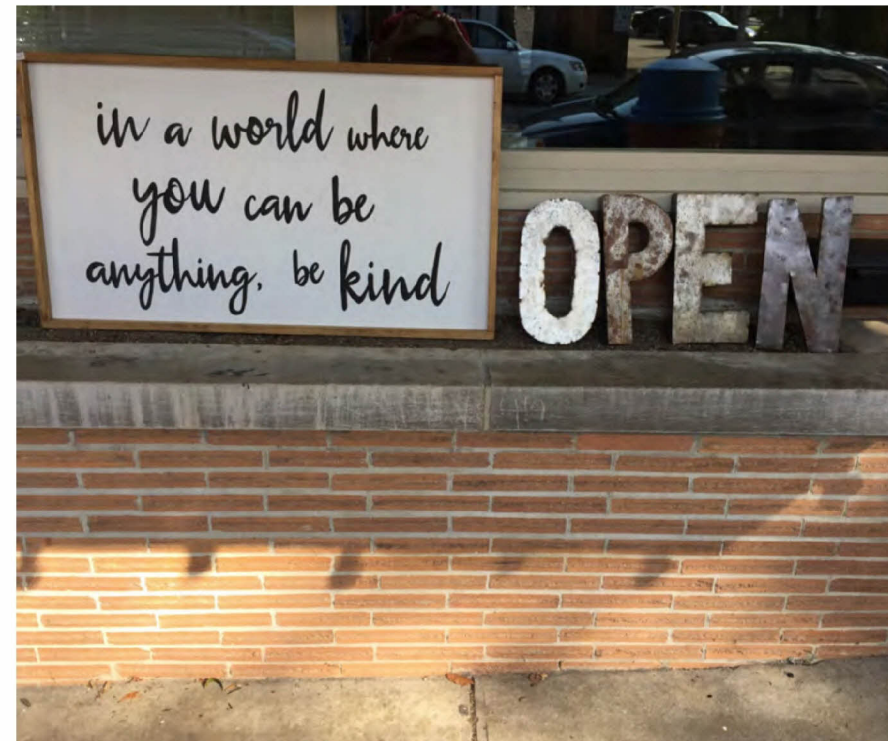 in a world where
you can be
anything, be kind
OPEN